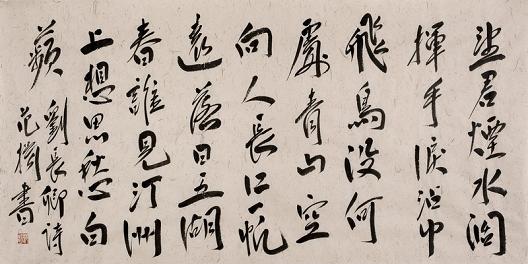 望君煙水闊
揮手淚沾巾
飛鳥沒何
處青山空
向人長江一帆
遠落日五湖
春誰見汀洲
上想思愁白
蘋
劉長卿詩
范 書